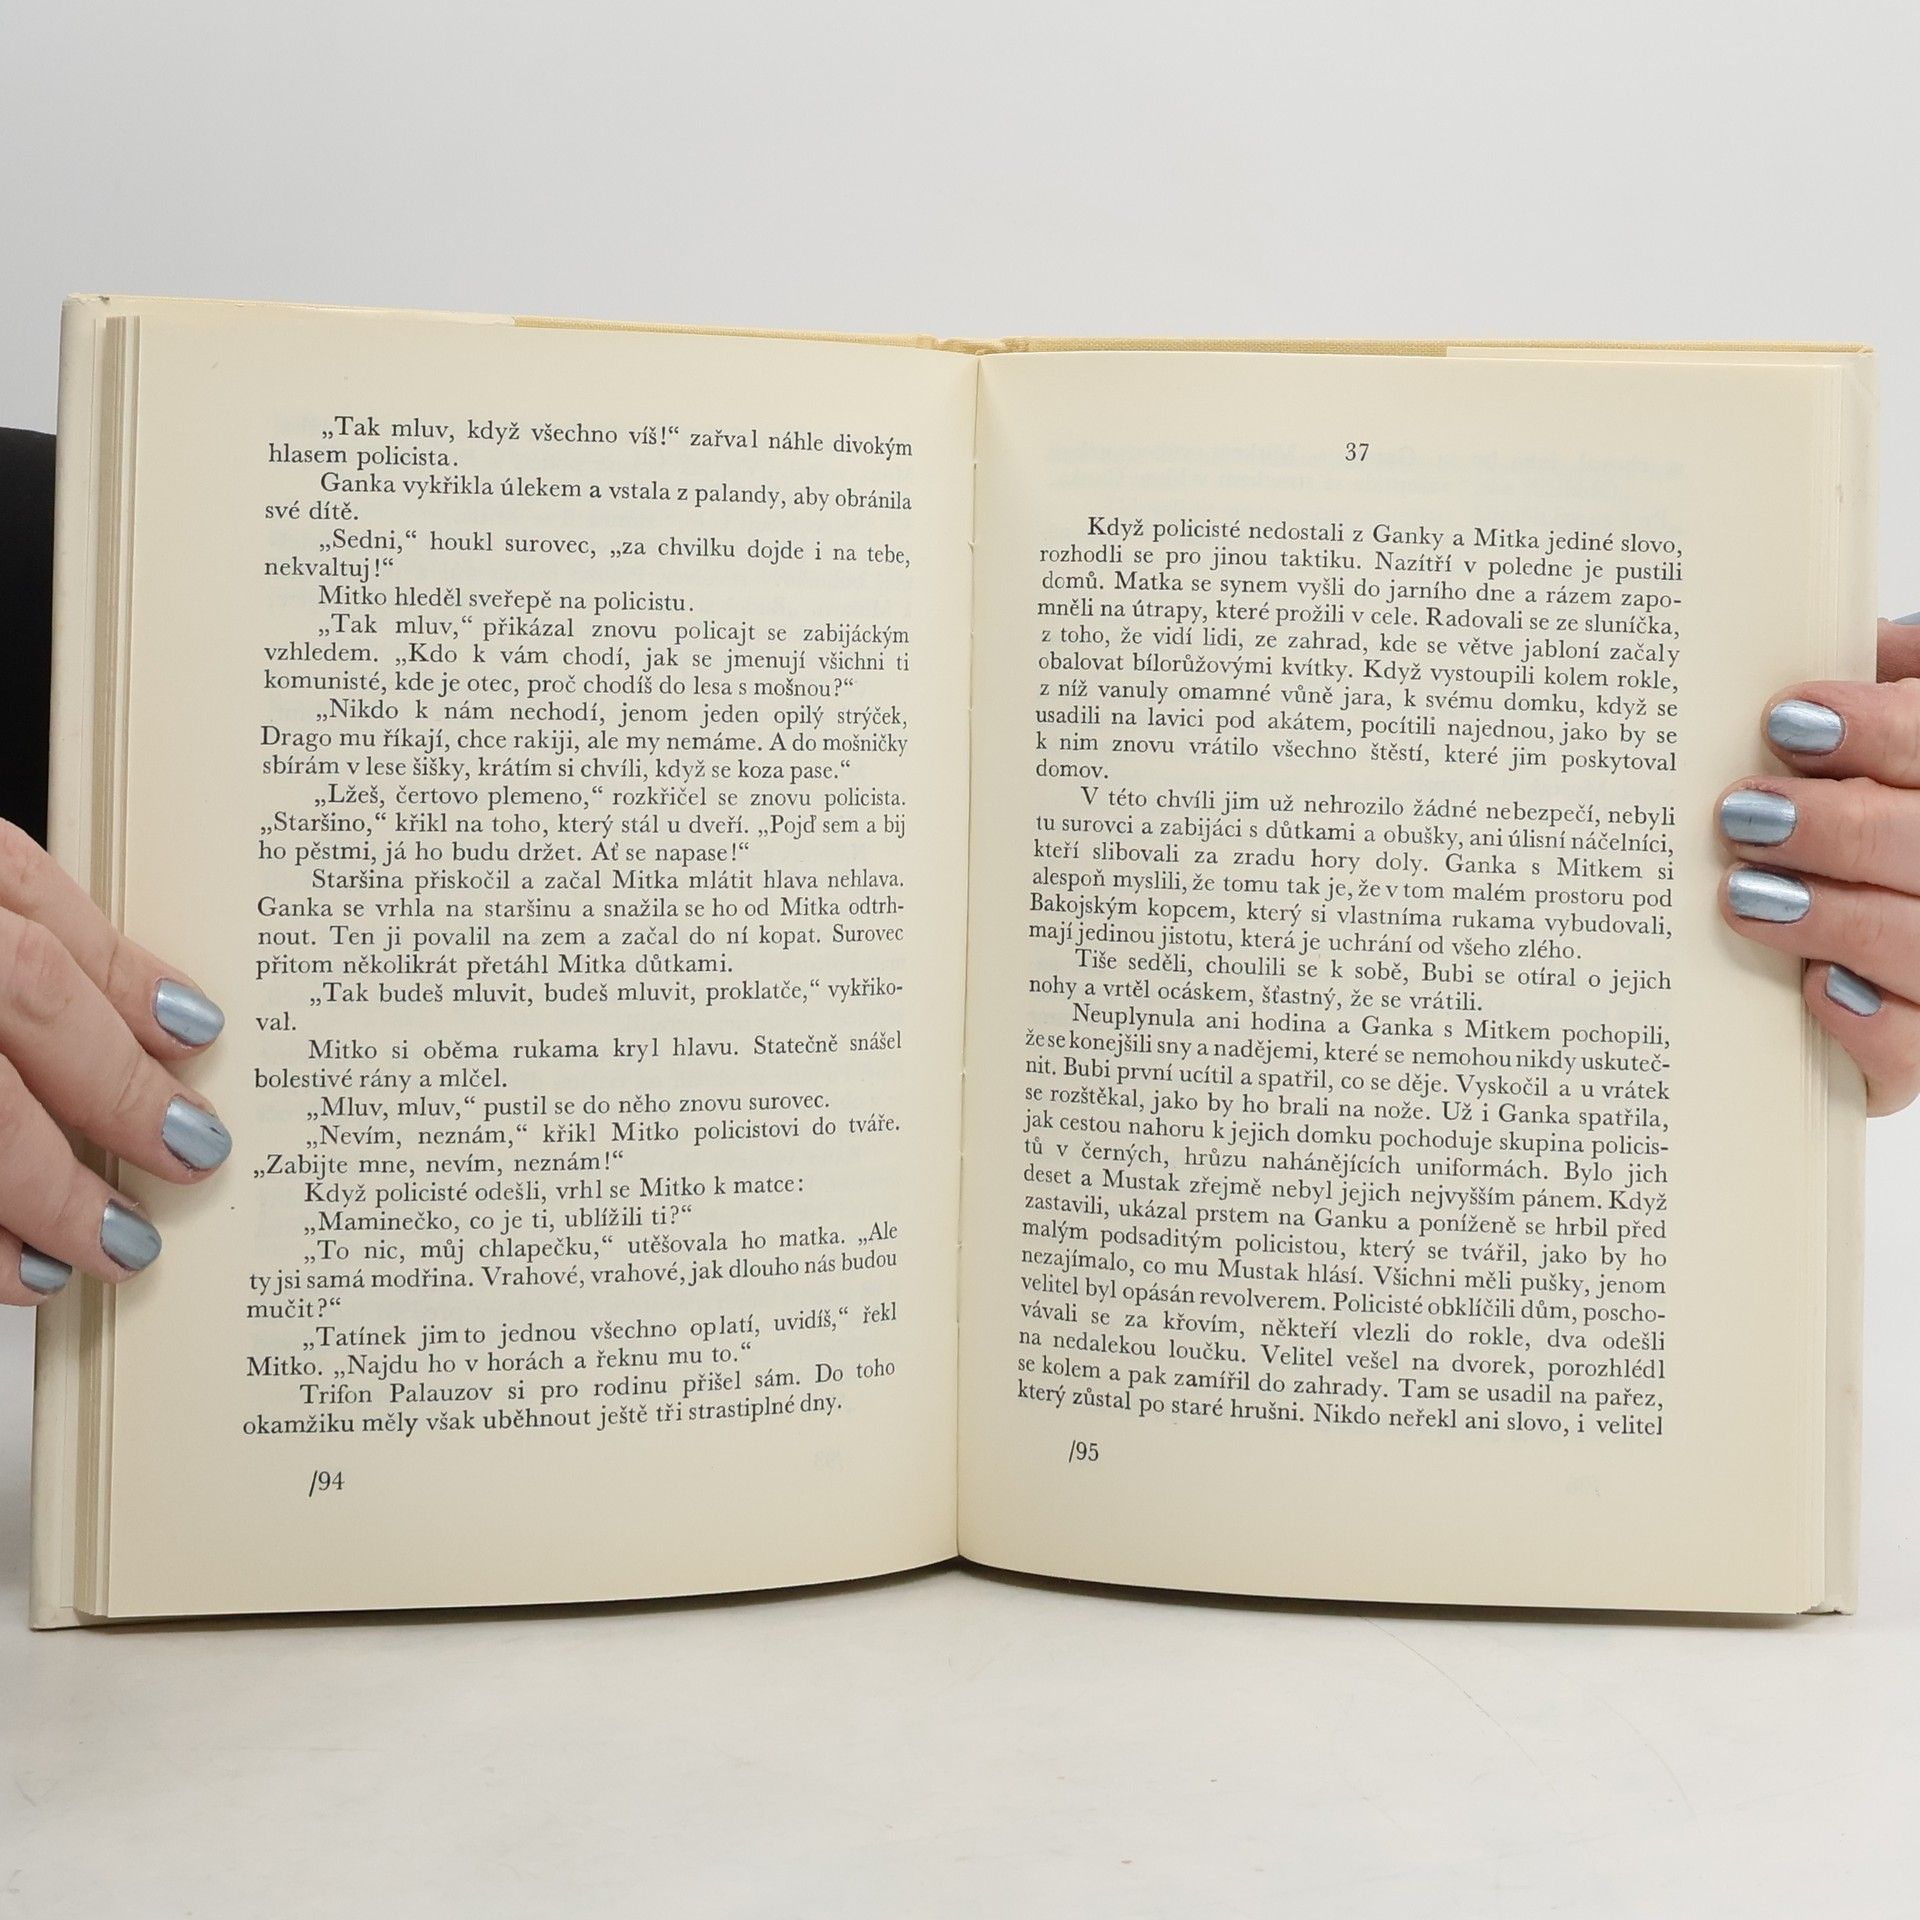 „Tak mluv, když všechno víš!“ zařval náhle divokým
hlasem policista.
Ganka vykřikla úlekem a vstala z palandy, aby obránila
své dítě.
„Sedni,“ houkl surovec, „za chvilku dojde i na tebe,
nekvaltuj!“
Mitko hleděl sveřepě na policistu.
„Tak mluv,“ přikázal znovu policajt se zabijáckým
vzhledem. „Kdo k vám chodí, jak se jmenují všichni ti
komunisté, kde je otec, proč chodíš do lesa s mošnou?“
„Nikdo k nám nechodí, jenom jeden opilý strýček,
Drago mu říkají, chce rakiji, ale my nemáme. A do mošničky
sbírám v lese šišky, krátím si chvíli, když se koza pase.“
„Lžeš, čertovo plemeno,“ rozkřičel se znovu policista.
„Staršino,“ křikl na toho, který stál u dveří. „Pojď sem a bij
ho pěstmi, já ho budu držet. Ať se napase!“
Staršina přiskočil a začal Mitka mlátit hlava nehlava.
Ganka se vrhla na staršinu a snažila se ho od Mitka odtrh-
nout. Ten ji povalil na zem a začal do ní kopat. Surovec
přitom několikrát přetáhl Mitka důtkami.
„Tak budeš mluvit, budeš mluvit, proklatče,“ vykřiko-
val.
Mitko si oběma rukama kryl hlavu. Statečně snášel
bolestivé rány a mlčel.
„Mluv, mluv,“ pustil se do něho znovu surovec.
„Nevím, neznám,“ křikl Mitko policistovi do tváře.
„Zabijte mne, nevím, neznám!“
Když policisté odešli, vrhl se Mitko k matce:
„Maminečko, co je ti, ublížili ti?“
„To nic, můj chlapečku,“ utěšovala ho matka. „Ale
ty jsi samá modřina. Vrahové, vrahové, jak dlouho nás budou
mučit?“
„Tatínek jim to jednou všechno oplatí, uvidíš,“ řekl
Mitko. „Najdu ho v horách a řeknu mu to.“
Trifon Palauzov si pro rodinu přišel sám. Do toho
okamžiku měly však uběhnout ještě tři strastiplné dny.
/94
37
Když policisté nedostali z Ganky a Mitka jediné slovo,
rozhodli se pro jinou taktiku. Nazítří v poledne je pustili
domů. Matka se synem vyšli do jarního dne a rázem zapo-
mněli na útrapy, které prožili v cele. Radovali se ze sluníčka,
z toho, že vidí lidi, ze zahrad, kde se větve jabloní začaly
obalovat bílorůžovými kvítky. Když vystoupili kolem rokle,
z níž vanuly omamné vůně jara, k svému domku, když se
usadili na lavici pod akátem, pocítili najednou, jako by se
k nim znovu vrátilo všechno štěstí, které jim poskytoval
domov.
V této chvíli jim už nehrozilo žádné nebezpečí, nebyli
tu surovci a zabijáci s důtkami a obušky, ani úlisní náčelníci,
kteří slibovali za zradu hory doly. Ganka s Mitkem si
alespoň myslili, že tomu tak je, že v tom malém prostoru pod
Bakojským kopcem, který si vlastníma rukama vybudovali,
mají jedinou jistotu, která je uchrání od všeho zlého.
Tiše seděli, choulili se k sobě, Bubi se otíral o jejich
nohy a vrtěl ocáskem, šťastný, že se vrátili.
Neuplynula ani hodina a Ganka s Mitkem pochopili,
že se konejšili sny a nadějemi, které se nemohou nikdy uskuteč-
nit. Bubi první ucítil a spatřil, co se děje. Vyskočil a u vrátek
se rozštěkal, jako by ho brali na nože. Už i Ganka spatřila,
jak cestou nahoru k jejich domku pochoduje skupina policis-
tů v černých, hrůzu nahánějících uniformách. Bylo jich
deset a Mustak zřejmě nebyl jejich nejvyšším pánem. Když
zastavili, ukázal prstem na Ganku a poníženě se hrbil před
malým podsaditým policistou, který se tvářil, jako by ho
nezajímalo, co mu Mustak hlásí. Všichni měli pušky, jenom
velitel byl opásán revolverem. Policisté obklíčili dům, poscho-
vávali se za křovím, někteří vlezli do rokle, dva odešli
na nedalekou loučku. Velitel vešel na dvorek, porozhlédl
se kolem a pak zamířil do zahrady. Tam se usadil na pařez,
který zůstal po staré hrušni. Nikdo neřekl ani slovo, i velitel
/95